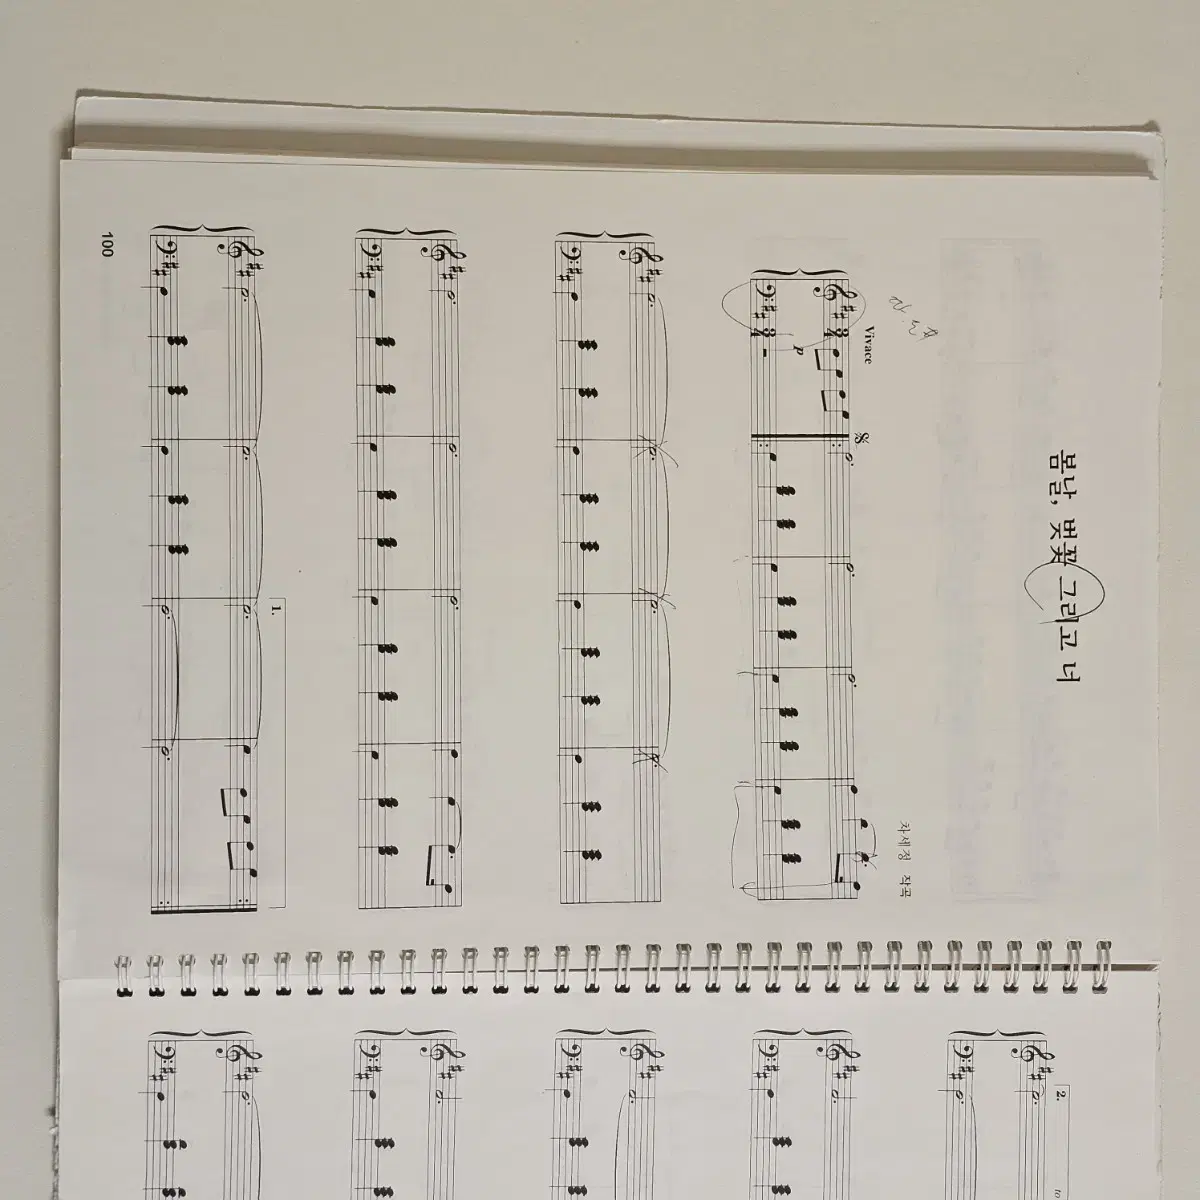 봄날, 벚꽃 그리고 너
차세정 작곡
Vivace
p
1.
100
2.
to